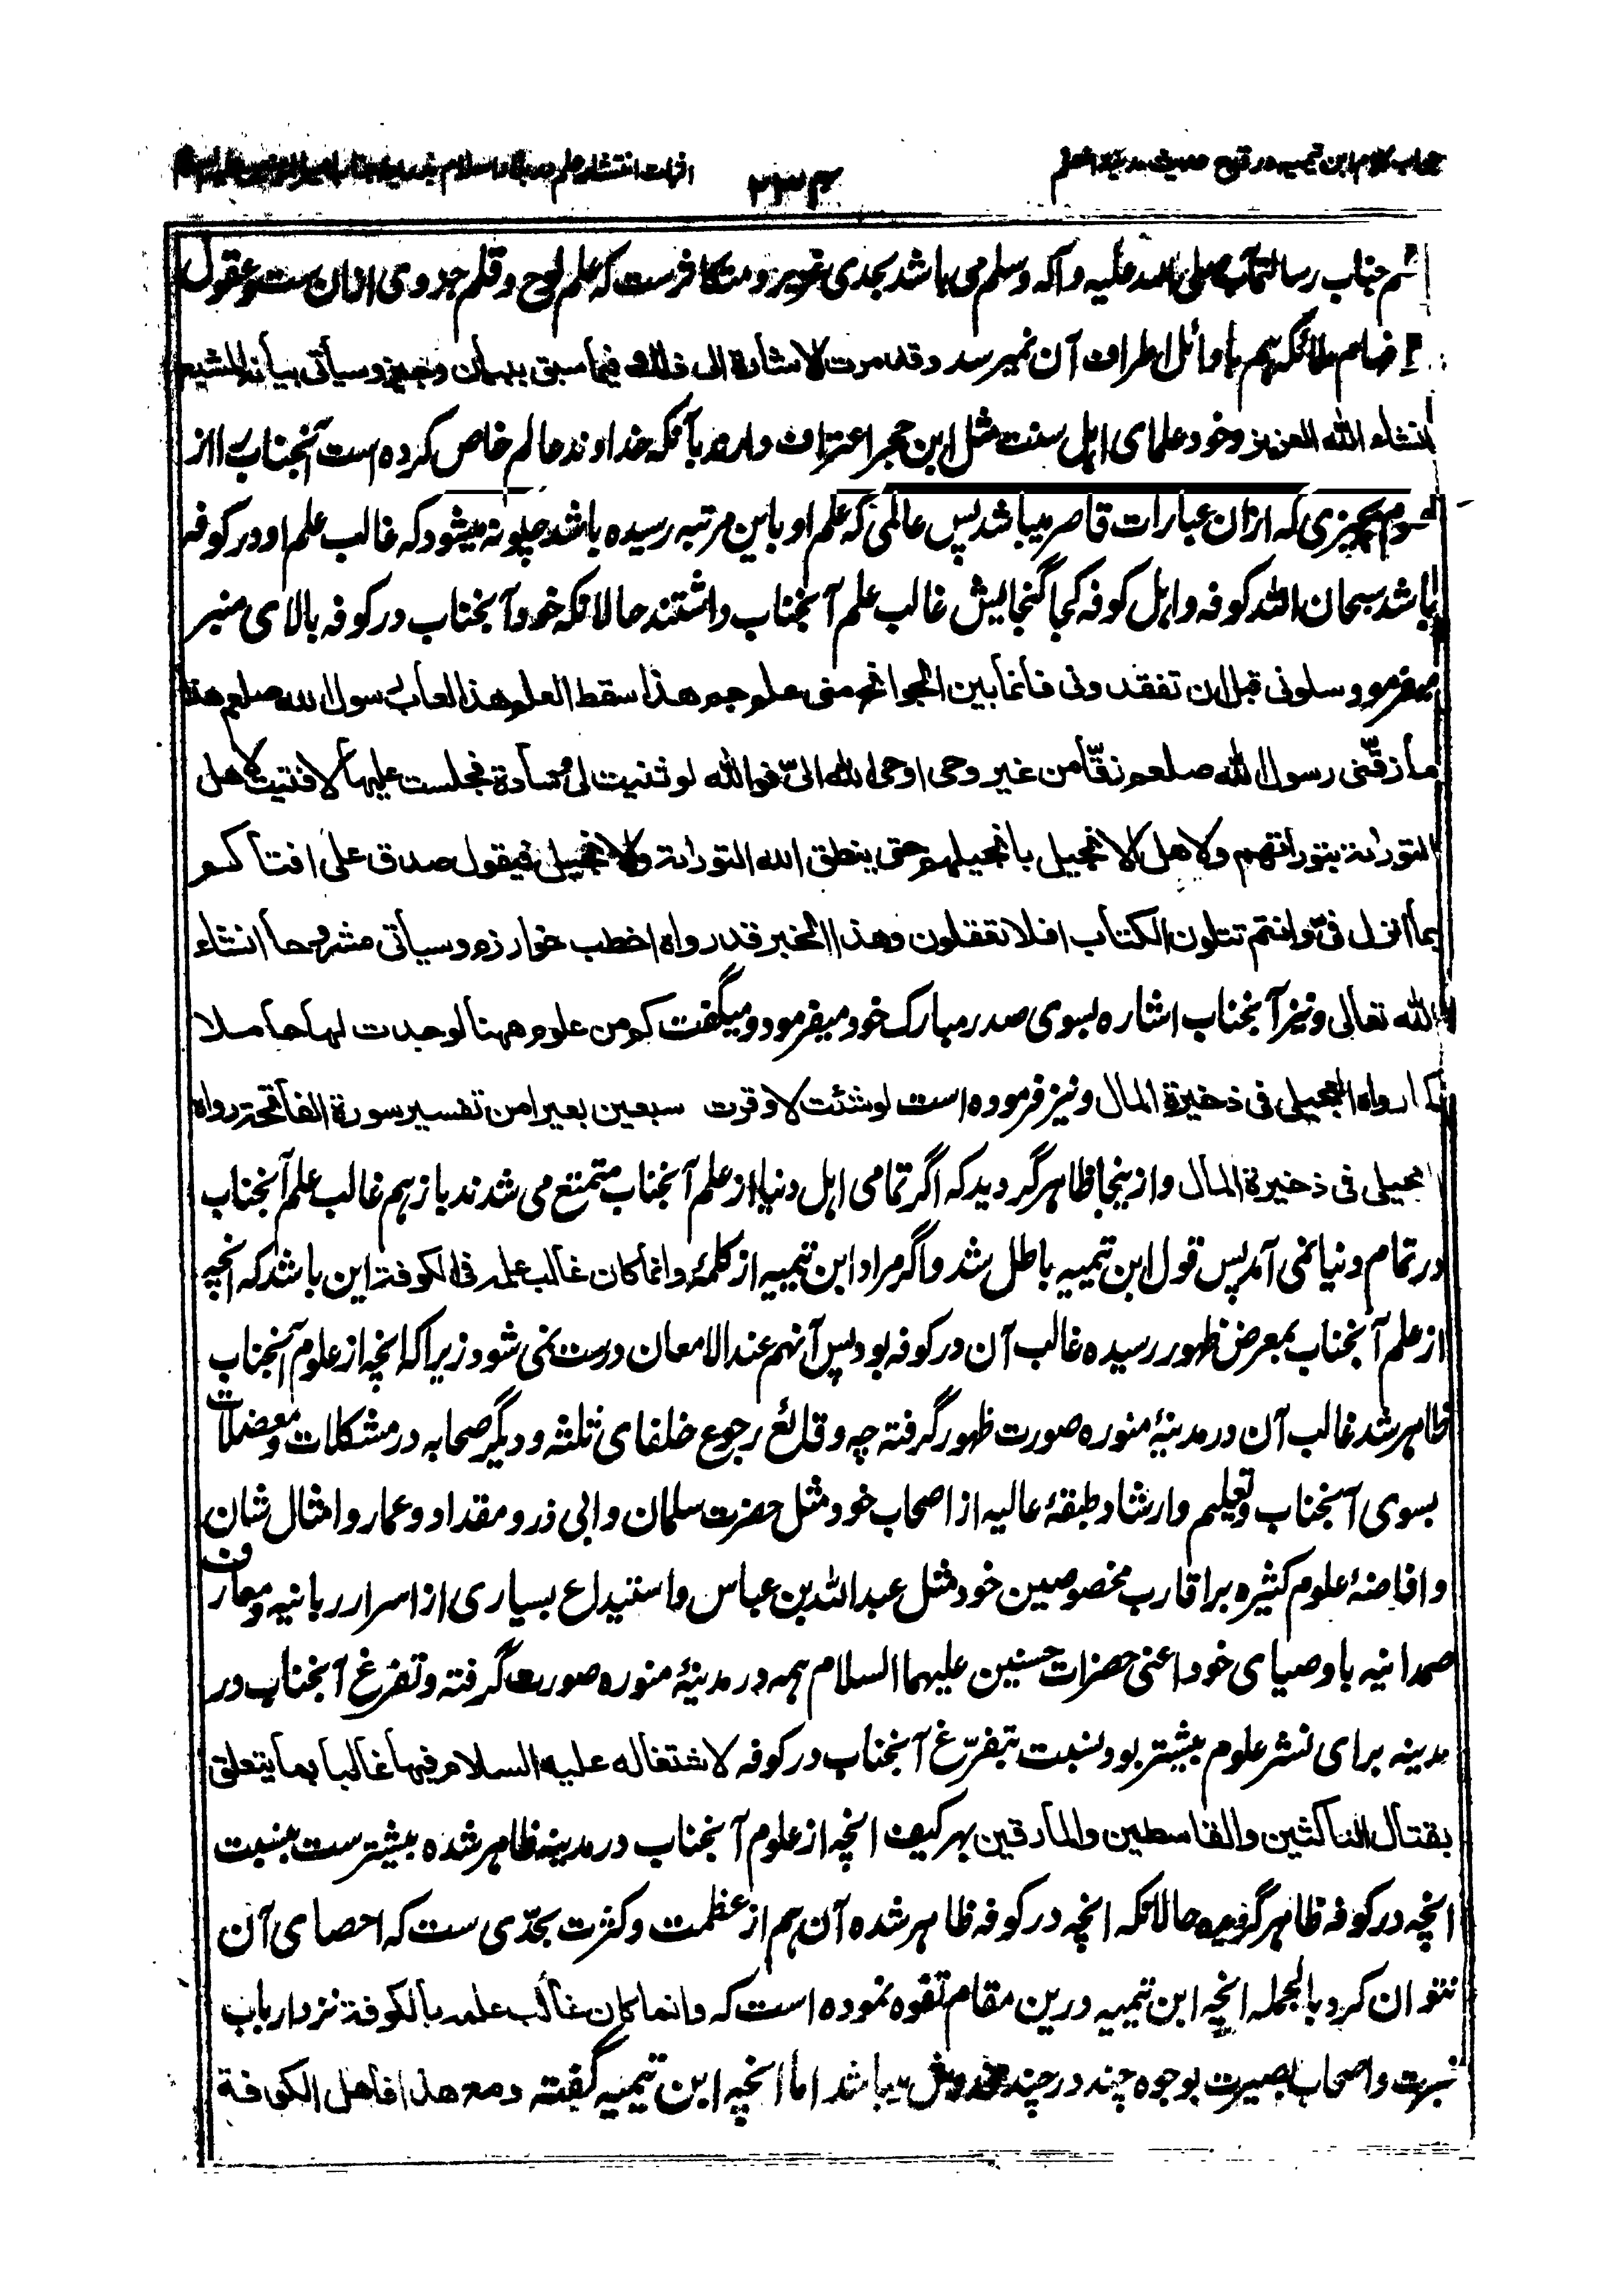 جواب کلام ابن تیمیه در قدح حدیث مدینة العلم
۲۳۴
جناب رسالتمآب صلی الله علیه وآله وسلم می باشد بحدی غزیر و متکاثرست که علم لوح و قلم جزوی ازان ست و عقول
و افهام ملائکه هم باوائل اطراف آن نمیرسد وقد مرت الاشارة الی ذلك فیما سبق ببیان وجیز وسیأتی بیانه المشبع
انشاء الله العزیز وخود علمای اهل سنت مثل ابن حجر اعتراف دارند بآنکه خداوند عالم خاص کرده است آنجناب را از
علوم بچیزی که ازان عبارات قاصر میباشد پس عالمی که علم او باین مرتبه رسیده باشد چگونه میشود که غالب علم او در کوفه
باشد سبحان الله کوفه و اهل کوفه کجا گنجایش غالب علم آنجناب داشتند حالانکه خود آنجناب در کوفه بالای منبر
میفرمود سلونی قبل ان تفقدونی فانما بین الجوانح منی علم جم هذا سقط العلم هذا لعاب رسول الله صلعم هذا
ما زقّنی رسول الله صلعم زقّا من غیر وحی اوحی الله الیّ فوالله لو ثنیت لی وسادة فجلست علیها لافتیت لاهل
التوراة بتوراتهم ولاهل الانجیل بانجیلهم حتی ینطق الله التوراة والانجیل فیقول صدق علی افتاکم
بما انزل فیّ وانتم تتلون الکتاب افلا تعقلون وهذا الخبر قد رواه اخطب خوارزم وسیأتی مشروحا انشاء
الله تعالی ونیز آنجناب اشاره بسوی صدر مبارک خود میفرمود و میگفت کم من علوم ههنا لو وجدت لها حاملا
کما رواه العجیلی فی ذخیرة المال ونیز فرموده است لو شئت لاوقرت سبعین بعیرا من تفسیر سورة الفاتحة رواه
العجیلی فی ذخیرة المال و ازینجا ظاهر گردید که اگر تمامی اهل دنیا از علم آنجناب متمتع می شدند باز هم غالب علم آنجناب
در تمام دنیا نمی آمد پس قول ابن تیمیه باطل شد و اگر مراد ابن تیمیه از کلمهٔ وانما کان غالب علمه فی الکوفة این باشد که انچه
از علم آنجناب بمعرض ظهور رسیده غالب آن در کوفه بود پس آنهم عند الامعان درست نمی شود زیرا که انچه از علوم آنجناب
ظاهر شد غالب آن در مدینهٔ منوره صورت ظهور گرفته چه وقائع رجوع خلفای ثلثه و دیگر صحابه در مشکلات و معضلات
بسوی آنجناب و تعلیم و ارشاد طبقهٔ عالیه از اصحاب خود مثل حضرت سلمان و ابی ذر و مقداد و عمار و امثال شان
و افاضهٔ علوم کثیره بر اقارب مخصوصین خود مثل عبدالله بن عباس و استیداع بسیاری از اسرار ربانیه و معارف
صمدانیه باوصیای خود اعنی حضرات حسنین علیهما السلام همه در مدینهٔ منوره صورت گرفته و تفرغ آنجناب در
مدینه برای نشر علوم بیشتر بود نسبت بتفرّغ آنجناب در کوفه لاشتغاله علیه السلام فیها غالبا بما یتعلق
بقتال الناکثین والقاسطین والمارقین بهر کیف انچه از علوم آنجناب در مدینه ظاهر شده بیشترست بنسبت
انچه در کوفه ظاهر گردیده حالانکه انچه در کوفه ظاهر شده آن هم از عظمت و کثرت بحدّی ست که احصای آن
نتوان کرد بالجمله انچه ابن تیمیه درین مقام تفوه نموده است که وانما کان غالب علمه بالکوفة نزد ارباب
خبرت و اصحاب بصیرت بوجوه چند در چند مخدوش میباشد اما انچه ابن تیمیه گفته ومع هذا فاهل الکوفة